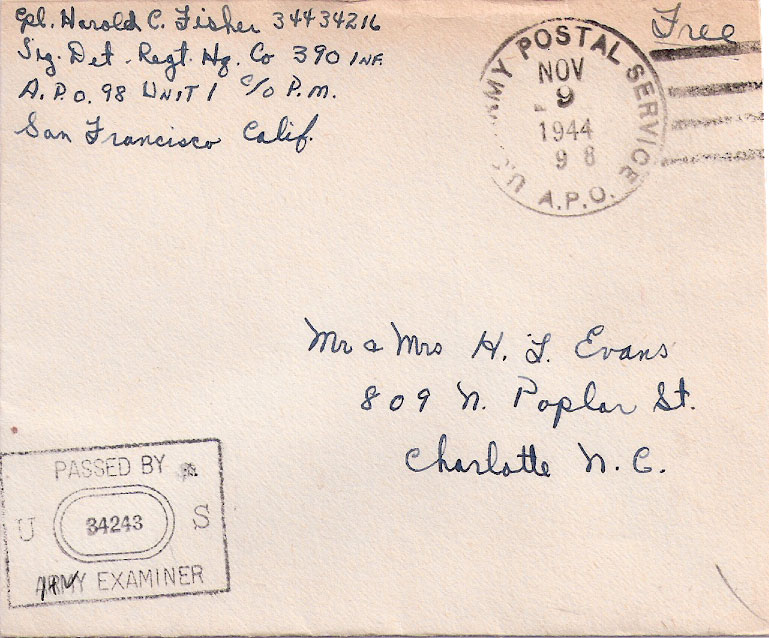 Cpl. Harold C. Fisher 34434216
Sig. Det. Regt. Hq. Co 390 INF.
A.P.O. 98 UNIT 1 c/o P.M.
San Francisco Calif.
Free
U.S. ARMY POSTAL SERVICE
NOV
9
1944
98
A.P.O.
Mr & Mrs H. L. Evans
809 N. Poplar St.
Charlotte N. C.
PASSED BY
U 34243 S
ARMY EXAMINER